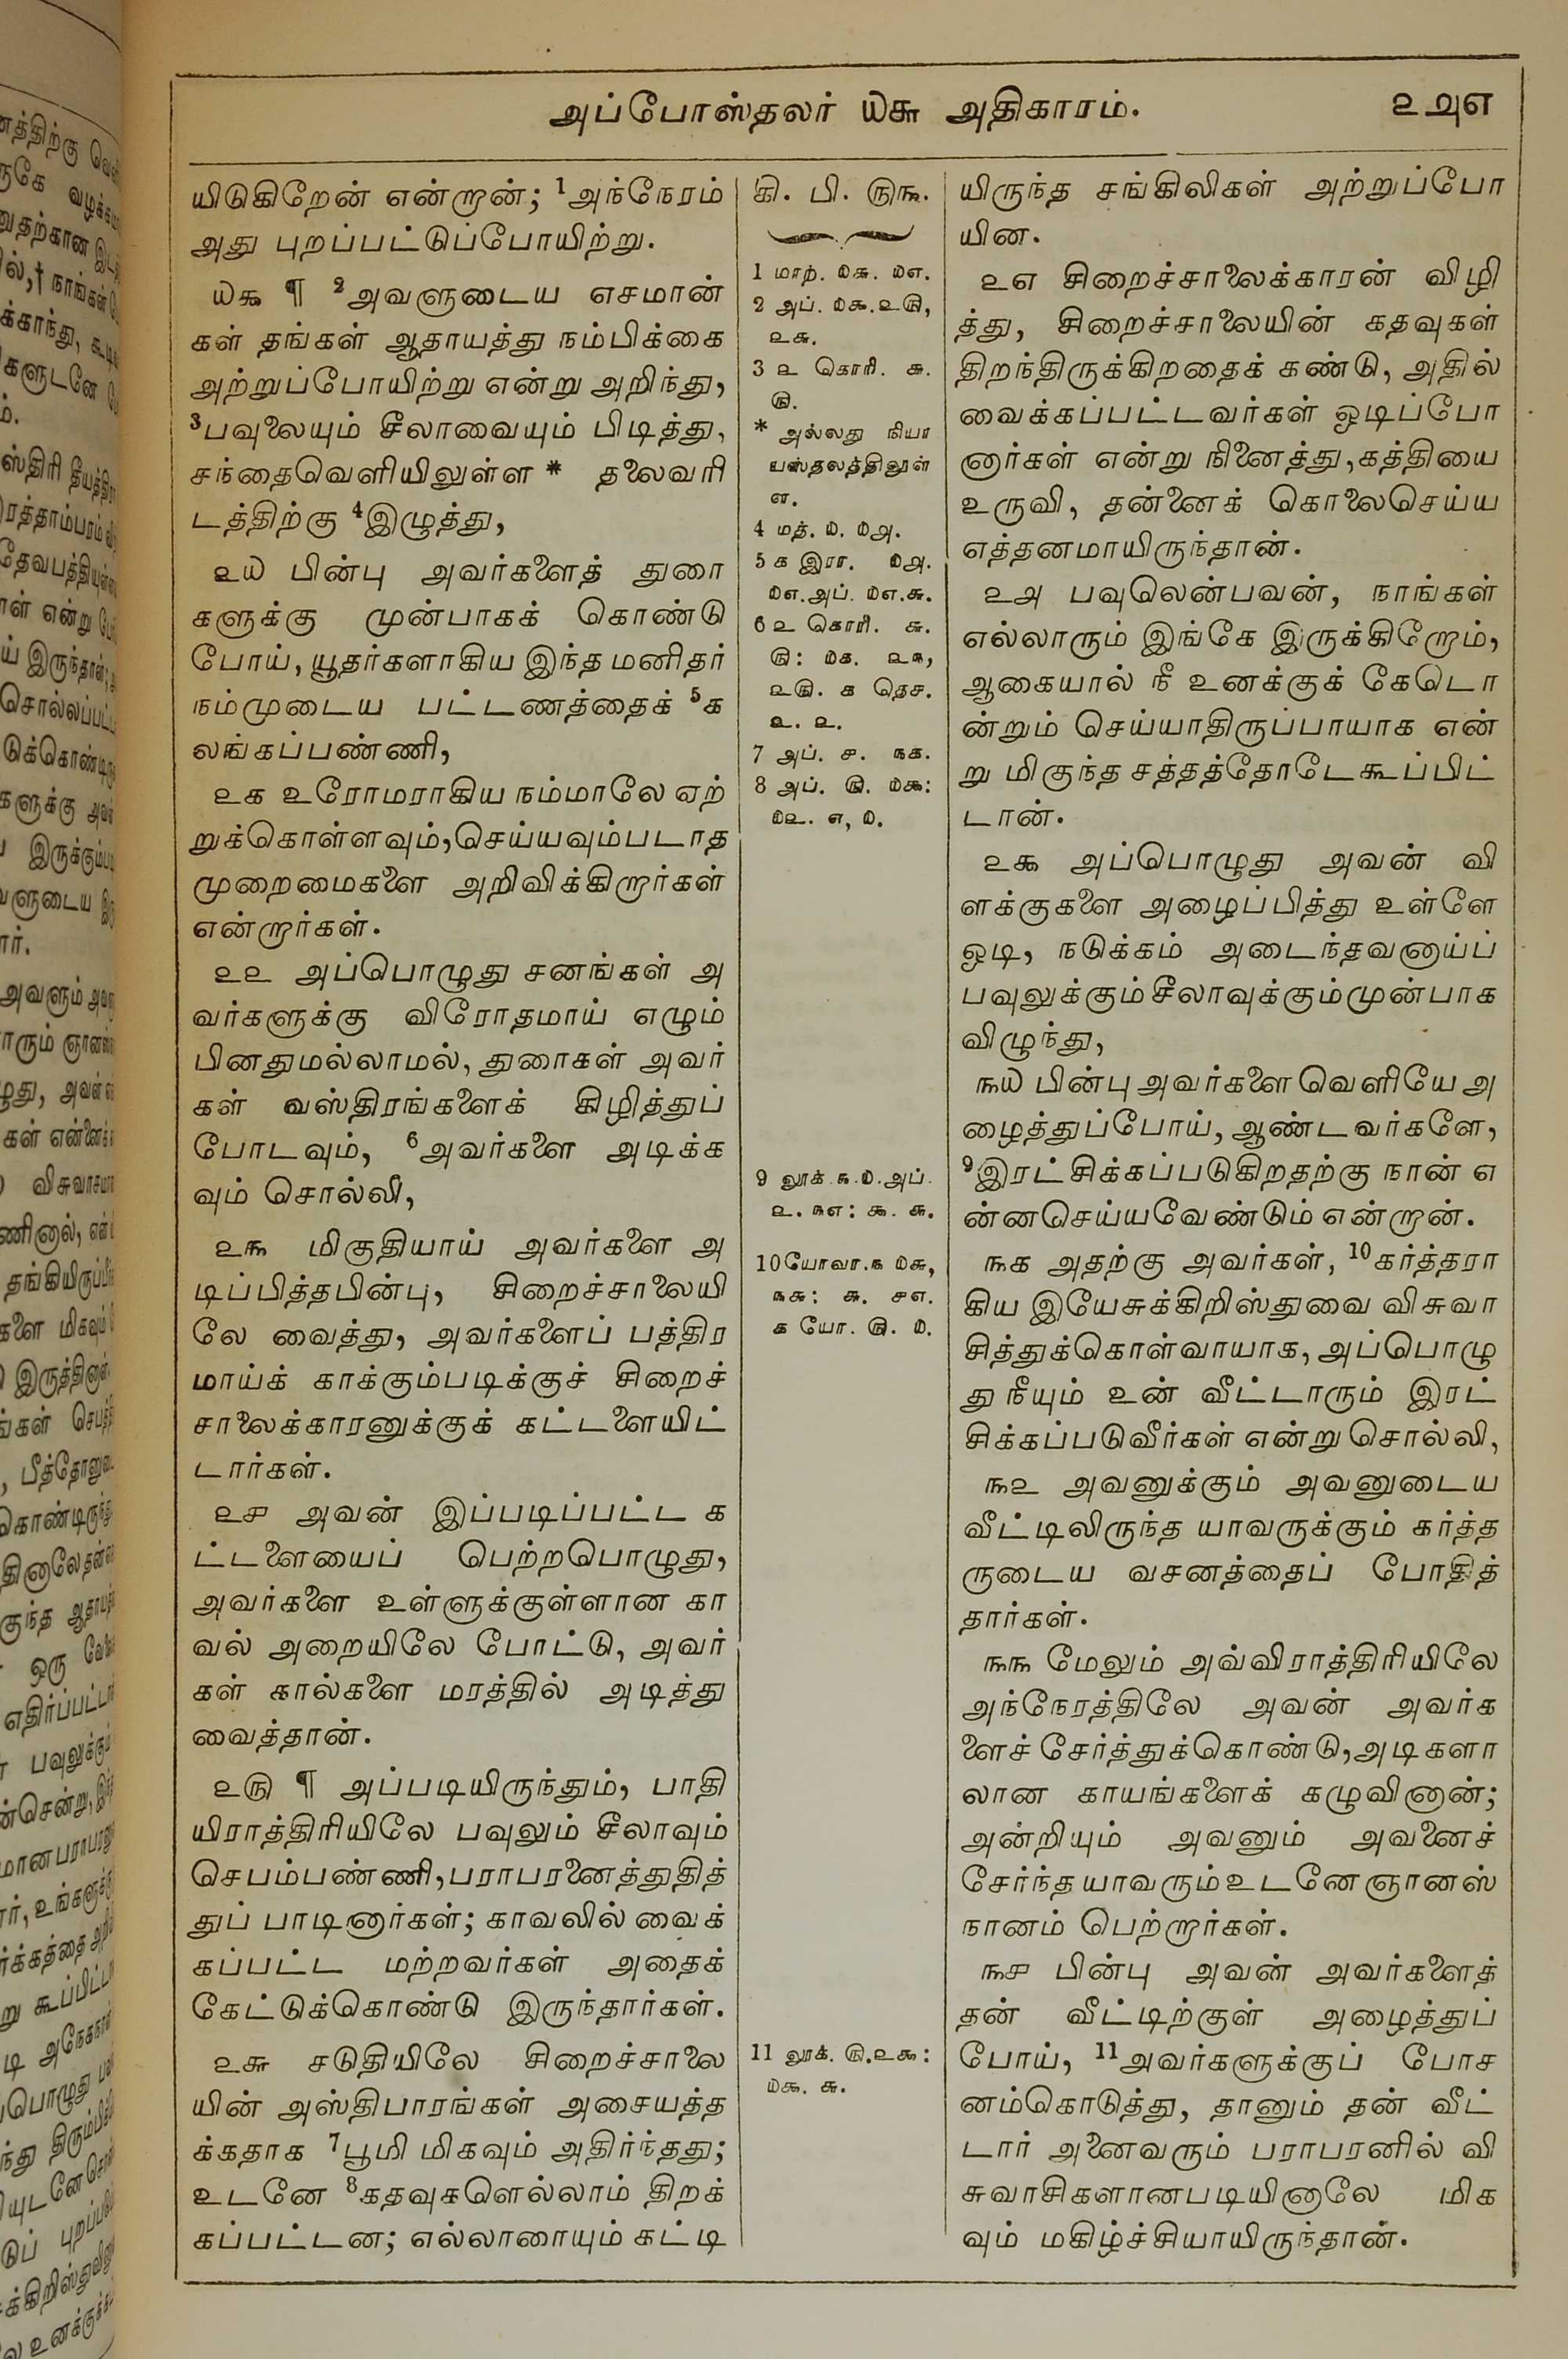 அப்போஸ்தலர் ௰௬ அதிகாரம்.
௨௮௭
யிடுகிறேன் என்றான்; 1அந்நேரம்
அது புறப்பட்டுப்போயிற்று.
௰௯ ¶ 2அவளுடைய எசமான்
கள் தங்கள் ஆதாயத்து நம்பிக்கை
அற்றுப்போயிற்று என்று அறிந்து,
3பவுலையும் சீலாவையும் பிடித்து,
சந்தைவெளியிலுள்ள * தலைவரி
டத்திற்கு 4இழுத்து,
௨௰ பின்பு அவர்களைத் துரை
களுக்கு முன்பாகக் கொண்டு
போய், யூதர்களாகிய இந்த மனிதர்
நம்முடைய பட்டணத்தைக் 5க
லங்கப்பண்ணி,
௨௧ உரோமராகிய நம்மாலே ஏற்
றுக்கொள்ளவும்,செய்யவும்படாத
முறைமைகளை அறிவிக்கிறார்கள்
என்றார்கள்.
௨௨ அப்பொழுது சனங்கள் அ
வர்களுக்கு விரோதமாய் எழும்
பினதுமல்லாமல், துரைகள் அவர்
கள் வஸ்திரங்களைக் கிழித்துப்
போடவும், 6அவர்களை அடிக்க
வும் சொல்லி,
௨௩ மிகுதியாய் அவர்களை அ
டிப்பித்தபின்பு, சிறைச்சாலையி
லே வைத்து, அவர்களைப் பத்திர
மாய்க் காக்கும்படிக்குச் சிறைச்
சாலைக்காரனுக்குக் கட்டளையிட்
டார்கள்.
௨௪ அவன் இப்படிப்பட்ட க
ட்டளையைப் பெற்றபொழுது,
அவர்களை உள்ளுக்குள்ளான கா
வல் அறையிலே போட்டு, அவர்
கள் கால்களை மரத்தில் அடித்து
வைத்தான்.
௨௫ ¶ அப்படியிருந்தும், பாதி
யிராத்திரியிலே பவுலும் சீலாவும்
செபம்பண்ணி,பராபரனைத்துதித்
துப் பாடினார்கள்; காவலில் வைக்
கப்பட்ட மற்றவர்கள் அதைக்
கேட்டுக்கொண்டு இருந்தார்கள்.
௨௬ சடுதியிலே சிறைச்சாலை
யின் அஸ்திபாரங்கள் அசையத்த
க்கதாக 7பூமி மிகவும் அதிர்ந்தது;
உடனே 8கதவுகளெல்லாம் திறக்
கப்பட்டன; எல்லாரையும் கட்டி
கி. பி. ௫௩.
1 மாற். ௰௬. ௰௭.
2 அப். ௰௯.௨௫,
௨௬.
3 ௨ கொரி. ௬.
௫.
* அல்லது நியா
யஸ்தலத்திலுள்
ள.
4 மத். ௰. ௰௮.
5 ௧ இரா. ௰௮.
௰௭.அப். ௰௭.௬.
6 ௨ கொரி. ௬.
௫: ௰௧. ௨௩,
௨௫. ௧ தெச.
௨. ௨.
7 அப். ௪. ௩௧.
8 அப். ௫. ௰௯:
௰௨. ௭, ௰.
9 லூக். ௩.௰.அப்.
௨. ௩௭: ௯. ௬.
10யோவா.௩ ௰௬,
௩௬: ௬. ௪௭.
௧ யோ. ௫. ௰.
11 லூக். ௫.௨௯:
௰௯. ௬.
யிருந்த சங்கிலிகள் அற்றுப்போ
யின.
௨௭ சிறைச்சாலைக்காரன் விழி
த்து, சிறைச்சாலையின் கதவுகள்
திறந்திருக்கிறதைக் கண்டு, அதில்
வைக்கப்பட்டவர்கள் ஓடிப்போ
னார்கள் என்று நினைத்து,கத்தியை
உருவி, தன்னைக் கொலைசெய்ய
எத்தனமாயிருந்தான்.
௨௮ பவுலென்பவன், நாங்கள்
எல்லாரும் இங்கே இருக்கிறோம்,
ஆகையால் நீ உனக்குக் கேடொ
ன்றும் செய்யாதிருப்பாயாக என்
று மிகுந்த சத்தத்தோடே கூப்பிட்
டான்.
௨௯ அப்பொழுது அவன் வி
ளக்குகளை அழைப்பித்து உள்ளே
ஓடி, நடுக்கம் அடைந்தவனாய்ப்
பவுலுக்கும் சீலாவுக்கும் முன்பாக
விழுந்து,
௩௰ பின்பு அவர்களை வெளியே அ
ழைத்துப்போய், ஆண்டவர்களே,
9இரட்சிக்கப்படுகிறதற்கு நான் எ
ன்னசெய்யவேண்டும் என்றான்.
௩௧ அதற்கு அவர்கள், 10கர்த்தரா
கிய இயேசுக்கிறிஸ்துவை விசுவா
சித்துக்கொள்வாயாக, அப்பொழு
து நீயும் உன் வீட்டாரும் இரட்
சிக்கப்படுவீர்கள் என்று சொல்லி,
௩௨ அவனுக்கும் அவனுடைய
வீட்டிலிருந்த யாவருக்கும் கர்த்த
ருடைய வசனத்தைப் போதித்
தார்கள்.
௩௩ மேலும் அவ்விராத்திரியிலே
அந்நேரத்திலே அவன் அவர்க
ளைச் சேர்த்துக்கொண்டு,அடிகளா
லான காயங்களைக் கழுவினான்;
அன்றியும் அவனும் அவனைச்
சேர்ந்த யாவரும் உடனே ஞானஸ்
நானம் பெற்றார்கள்.
௩௪ பின்பு அவன் அவர்களைத்
தன் வீட்டிற்குள் அழைத்துப்
போய், 11அவர்களுக்குப் போச
னம்கொடுத்து, தானும் தன் வீட்
டார் அனைவரும் பராபரனில் வி
சுவாசிகளானபடியினாலே மிக
வும் மகிழ்ச்சியாயிருந்தான்.